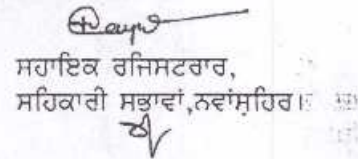 ਸਹਾਇਕ ਰਜਿਸਟਰਾਰ,
ਸਹਿਕਾਰੀ ਸਭਾਵਾਂ,ਨਵਾਂਸ਼ਹਿਰ।